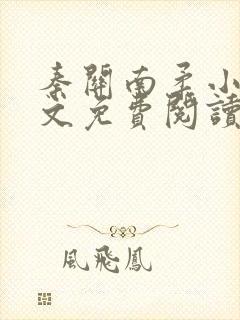 秦關南柔小
文免費閱讀
風飛鳳